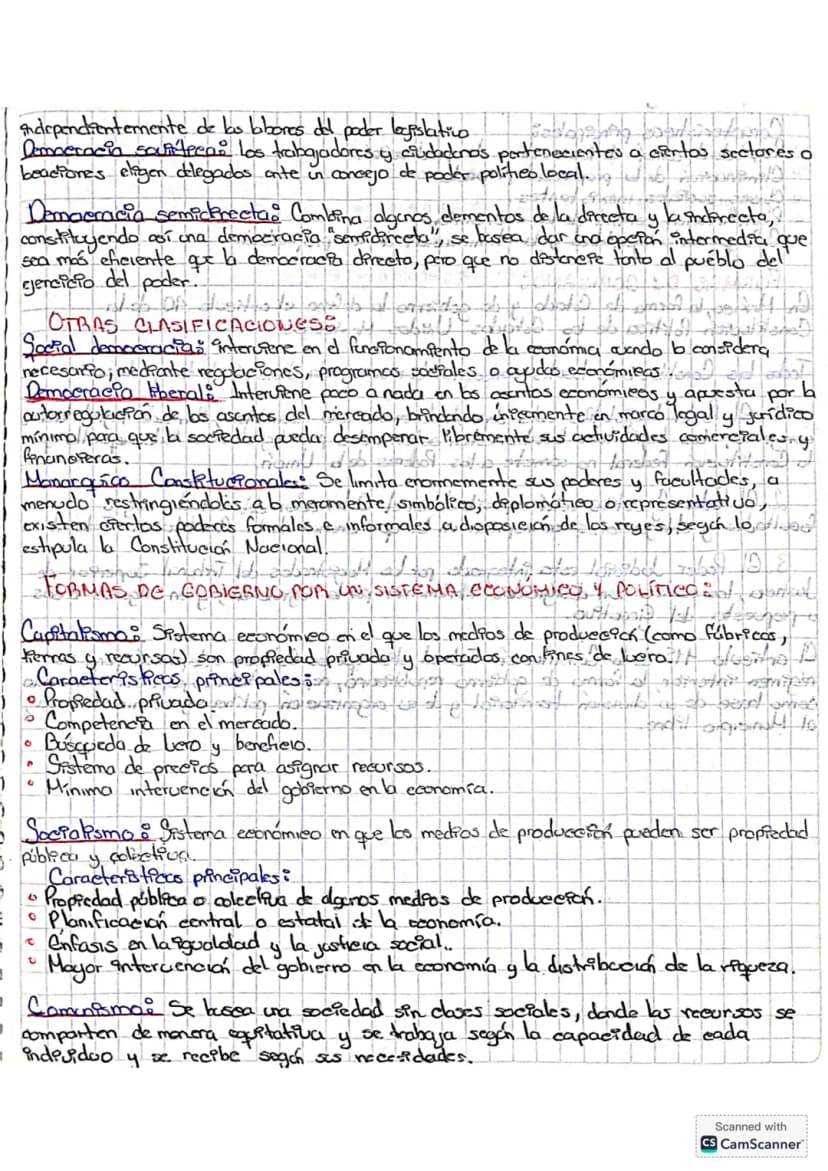 independientemente de las labores del poder legislativo
Democracia soviética: los trabajadores y ciudadanos pertenecientes a ciertos sectores o
locaciones eligen delegados ante un concejo de poder político local.
Democracia semidirecta: Combina algunos elementos de la directa y la indirecta,
constituyendo así una democracia "semidirecta", se busca dar una opción intermedia que
sea más eficiente que la democracia directo, pero que no distancie tanto al pueblo del
ejercicio del poder.
OTRAS CLASIFICACIONES:
Social democracia: interviene en el funcionamiento de la económia cuando lo considera
necesario; mediante regulaciones, programas sociales o ayudas económicas
Democracia liberal: Interviene poco a nada en los asuntos económicos y apuesta por la
autorregulación de los asuntos del mercado, brindando únicamente un marco legal y jurídico
mínimo para que la sociedad pueda desempeñar libremente sus actividades comerciales y
financieras.
Monarquico Constitucionales: Se limita enormemente sus poderes y facultades, a
menudo restringiéndolos a lo meramente simbólico; diplomático o representativo,
existen ciertos poderes formales e informales a disposición de los reyes, según lo
estipula la Constitución Nacional.
FORMAS DE GOBIERNO POR UN SISTEMA ECONÓMICO Y POLÍTICO:
Capitalismo: Sistema económico en el que los medios de producción (como fábricas,
tierras y recursos) son propiedad privada y operados con fines de lucro.
Características principales:
• Propiedad privada
• Competencia en el mercado.
• Búsqueda de lucro y beneficio.
• Sistema de precios para asignar recursos.
• Mínima intervención del gobierno en la economía.
Socialismo: Sistema económico en que los medios de producción pueden ser propiedad
pública y colectiva.
Características principales:
• Propiedad pública o colectiva de algunos medios de producción.
• Planificación central o estatal de la economía.
• Énfasis en la igualdad y la justicia social.
• Mayor intervención del gobierno en la economía y la distribución de la riqueza.
Comunismo: Se busca una sociedad sin clases sociales, donde las recursos se
comparten de manera equitativa y se trabaja según la capacidad de cada
individuo y se recibe según sus necesidades.
Scanned with
CS CamScanner